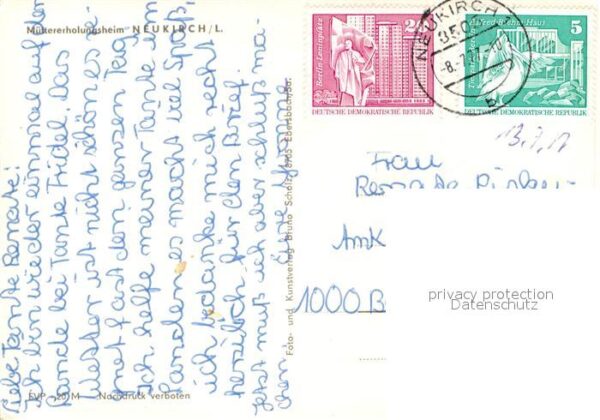 Müttererholungsheim NEUKIRCH/L.
Liebe Tante Renate!
Ich bin wieder einmal auf dem
Lande bei Tante Fridel. Das
Wetter ist nicht schön es reg-
net fast den ganzen Tag.
Ich helfe meiner Tante im
Laden es macht viel Spaß.
ich bedanke mich recht
herzlich für den Brief.
Jetzt muß ich aber schluß ma-
chen. Eure Yvonne
EVP -,20 M Nachdruck verboten
Foto- und Kunstverlag Bruno Scholz, Ebersbach/Sa.
Berlin, Leninplatz
20
DEUTSCHE DEMOKRATISCHE REPUBLIK
Alfred-Brehm-Haus
5
DEUTSCHE DEMOKRATISCHE REPUBLIK
NEUKIRCH
Frau
Renate
1000 B
privacy protection
Datenschutz